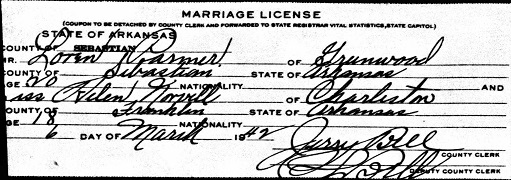 MARRIAGE LICENSE
(COUPON TO BE DETACHED BY COUNTY CLERK AND FORWARDED TO STATE REGISTRAR VITAL STATISTICS, STATE CAPITOL)
STATE OF ARKANSAS
COUNTY OF SEBASTIAN
MR. Loren OF Greenwood
COUNTY OF Sebastian STATE OF Arkansas
AGE 20 NATIONALITY AND
Miss Helen OF Charleston
COUNTY OF Franklin STATE OF Arkansas
AGE 18 NATIONALITY
6 DAY OF March 1942 Jerry Bell
COUNTY CLERK
Bell
DEPUTY COUNTY CLERK